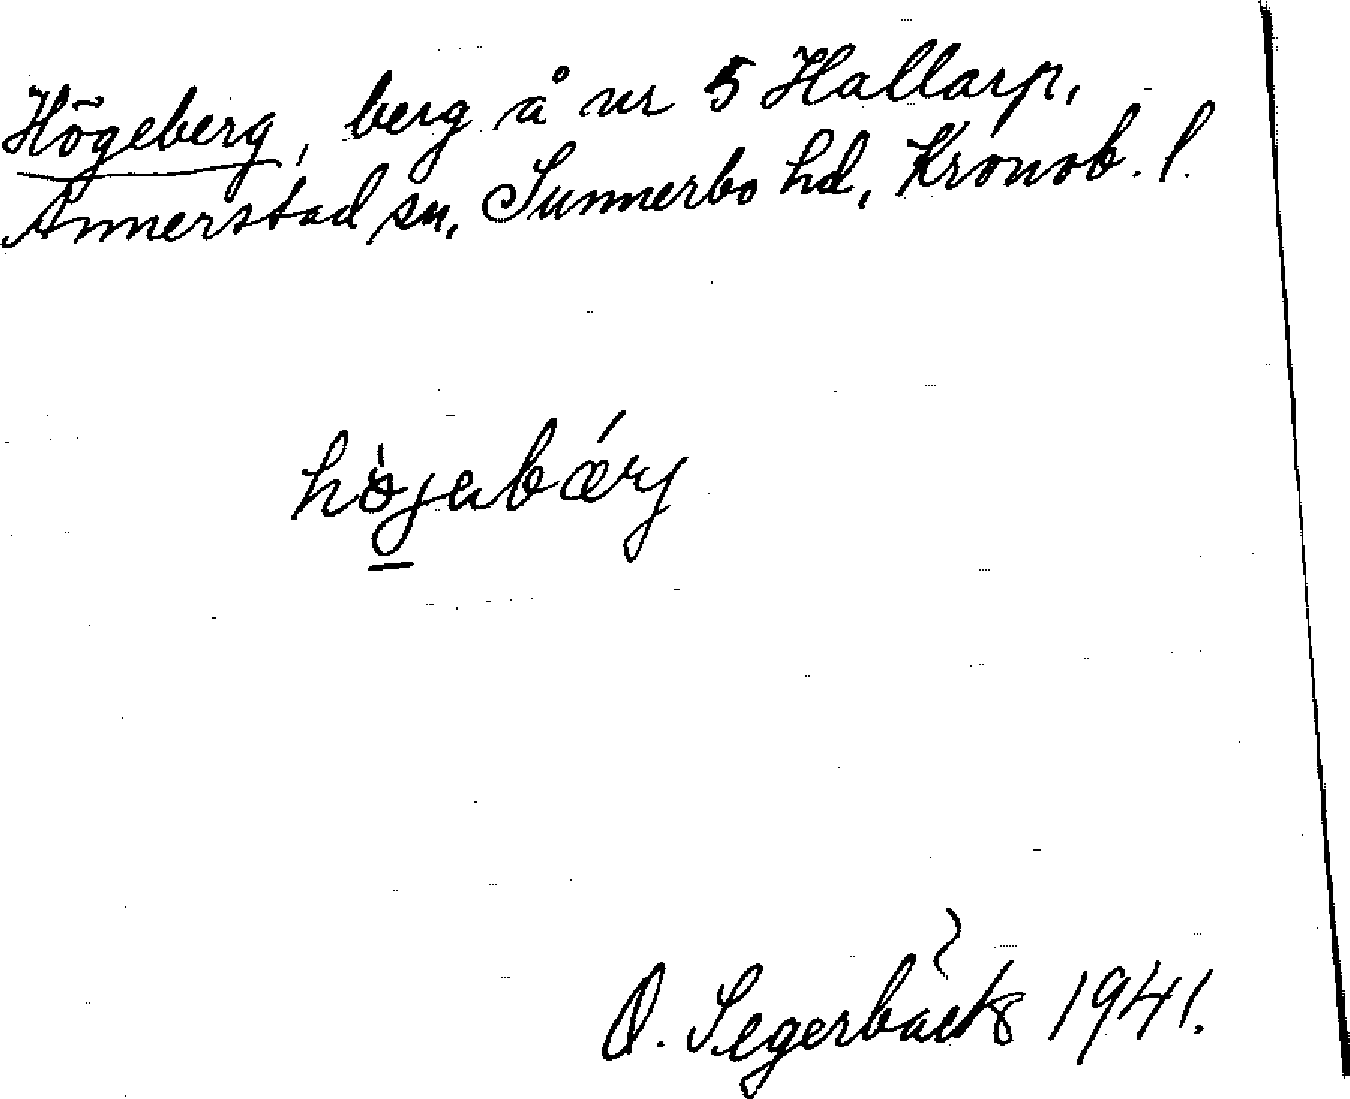 Högeberg, berg å nr 5 Hallarp,
Annerstad sn, Sunnerbo hd, Kronob. l.
O. Segerbäck 1941.